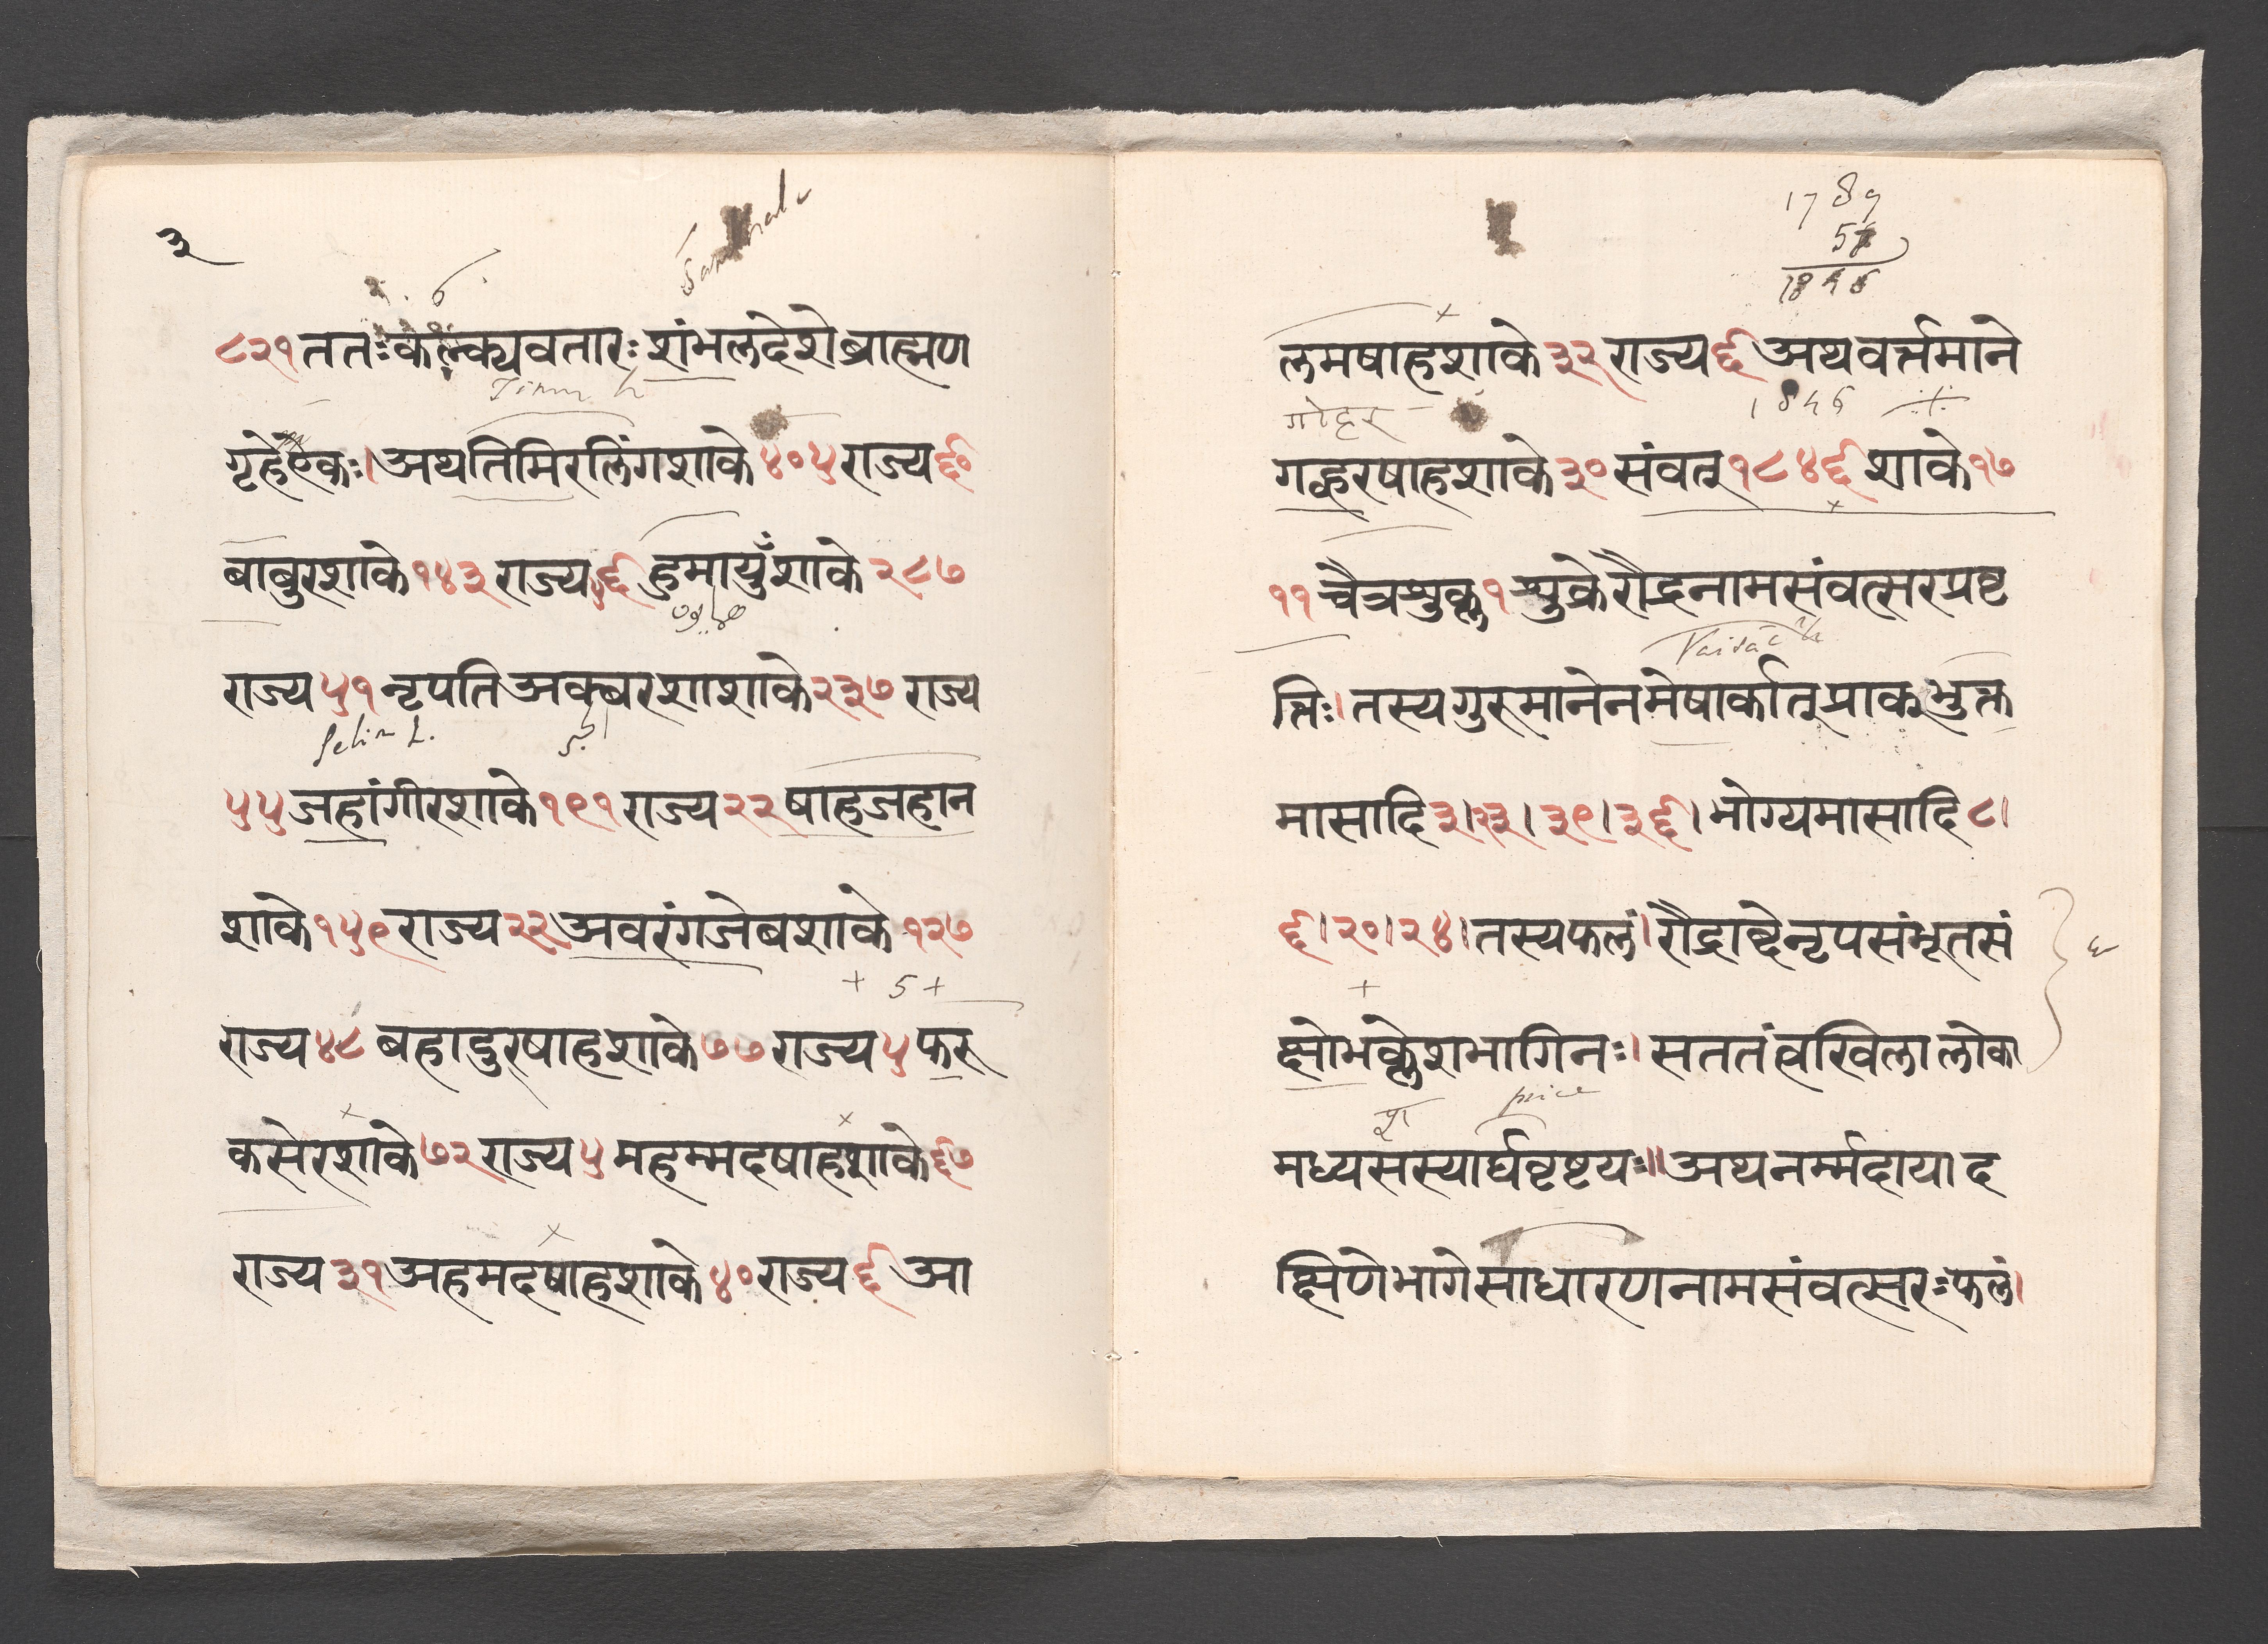 ३
Sambala
6
८२१ ततः कल्क्यवतारः शंभलदेशे ब्राह्मण
Timur h
गृहे एकः। अथ तिमिरलिंगशाके ४०५ राज्य ६०
बाबुरशाके १४३ राज्य ५६ हुमायुँशाके २८७
राज्य ५१ नृपति अक्बरशाशाके २३७ राज्य
Selim h.
५५ जहांगीरशाके १९१ राज्य २२ षाहजहान
शाके १५९ राज्य २२ अवरंगजेबशाके १२७
+ 5 +
राज्य ४८ बहादुरषाहशाके ७७ राज्य ५ फरू
कसेरशाके ७२ राज्य ५ महम्मदषाहशाके ६७
राज्य ३१ अहमदषाहशाके ४० राज्य ६ आ
1789
57
1846
लमषाहशाके ३२ राज्य ६ अथ वर्त्तमाने
गोहर
1846
गव्हरषाहशाके ३० संवत् १८४६ शाके १७
११ चैत्रशुक्ल १ शुक्रे रौद्रनामसंवत्सरप्रवृ
Vaisāc'h
त्तिः। तस्य गुरुमानेन मेषार्कात् प्राक् भुक्त
मासादि ३।२३।३९।३६। भोग्यमासादि ८।
६।२०।२४। तस्य फलं। रौद्राब्दे नृपसंभूतसं
क्षोभक्लेशभागिनः। सततं त्वखिला लोका
price
मध्यसस्यार्घवृष्टयः॥ अथ नर्म्मदाया द
क्षिणे भागे साधारणनामसंवत्सरः फलं।